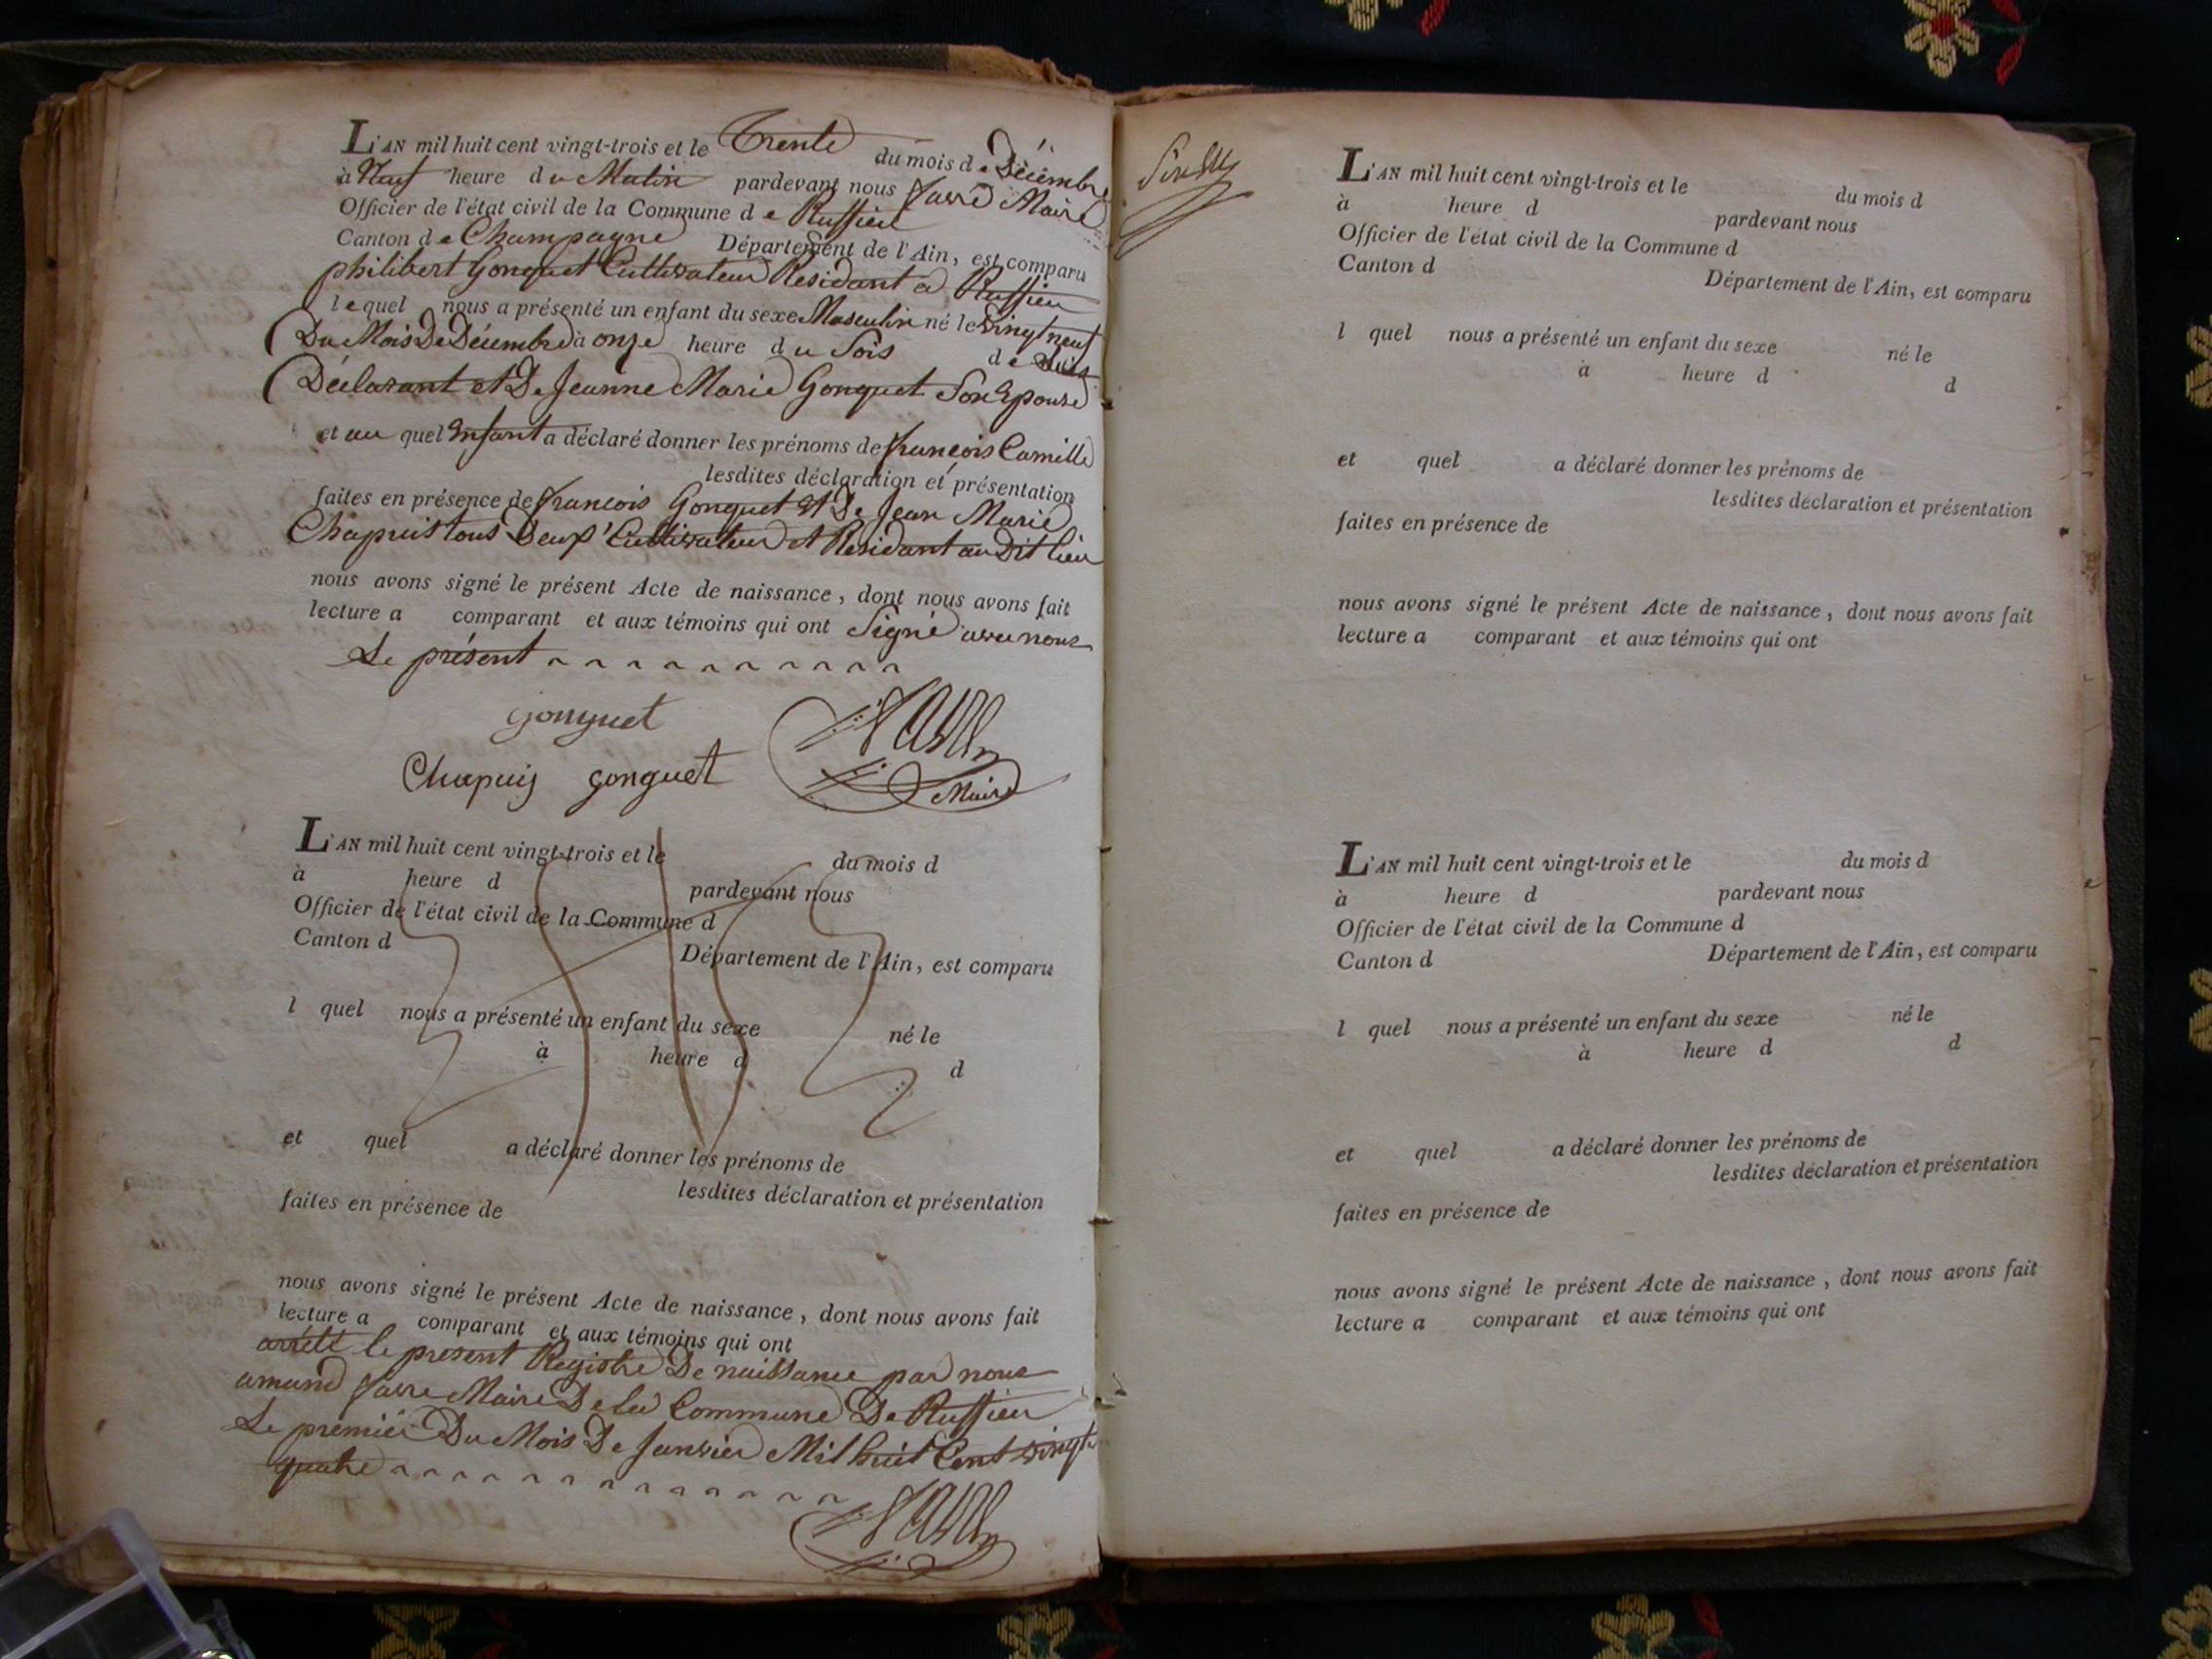 L'AN mil huit cent vingt-trois et le Trente du mois de Décembre
à Neuf heure du Matin pardevant nous favre Maire
Officier de l'état civil de la Commune de Ruffieu
Canton de Champagne Département de l'Ain, est comparu
philibert Gonguet Cultivateur Residant a Ruffieu
lequel nous a présenté un enfant du sexe Masculin né le vingt neuf
Du Mois De Décembre à onze heure du Soir de
Déclarant et De Jeanne Marie Gonguet Son Epouse
et au quel Enfant a déclaré donner les prénoms de françois Camille
lesdites déclaration et présentation
faites en présence de francois Gonguet et De Jean Marie
Chapuis tous Deux Cultivateur et Residant au Dit lieu
nous avons signé le présent Acte de naissance, dont nous avons fait
lecture a comparant et aux témoins qui ont Signé avec nous
Le présent
Gonguet
Chapuis gonguet
favre
Maire
L'AN mil huit cent vingt-trois et le du mois d
à heure d pardevant nous
Officier de l'état civil de la Commune d
Canton d Département de l'Ain, est comparu
l quel nous a présenté un enfant du sexe né le
à heure d d
et quel a déclaré donner les prénoms de
lesdites déclaration et présentation
faites en présence de
nous avons signé le présent Acte de naissance, dont nous avons fait
lecture a comparant et aux témoins qui ont
arrêté le present Registre De naissance par nous
amand favre Maire De la Commune De Ruffieu
Le premier Du Mois De Janvier Mil huit Cent vingt
quatre
favre
L'AN mil huit cent vingt-trois et le du mois d
à heure d pardevant nous
Officier de l'état civil de la Commune d
Canton d Département de l'Ain, est comparu
l quel nous a présenté un enfant du sexe né le
à heure d d
et quel a déclaré donner les prénoms de
lesdites déclaration et présentation
faites en présence de
nous avons signé le présent Acte de naissance, dont nous avons fait
lecture a comparant et aux témoins qui ont
L'AN mil huit cent vingt-trois et le du mois d
à heure d pardevant nous
Officier de l'état civil de la Commune d
Canton d Département de l'Ain, est comparu
l quel nous a présenté un enfant du sexe né le
à heure d d
et quel a déclaré donner les prénoms de
lesdites déclaration et présentation
faites en présence de
nous avons signé le présent Acte de naissance, dont nous avons fait
lecture a comparant et aux témoins qui ont